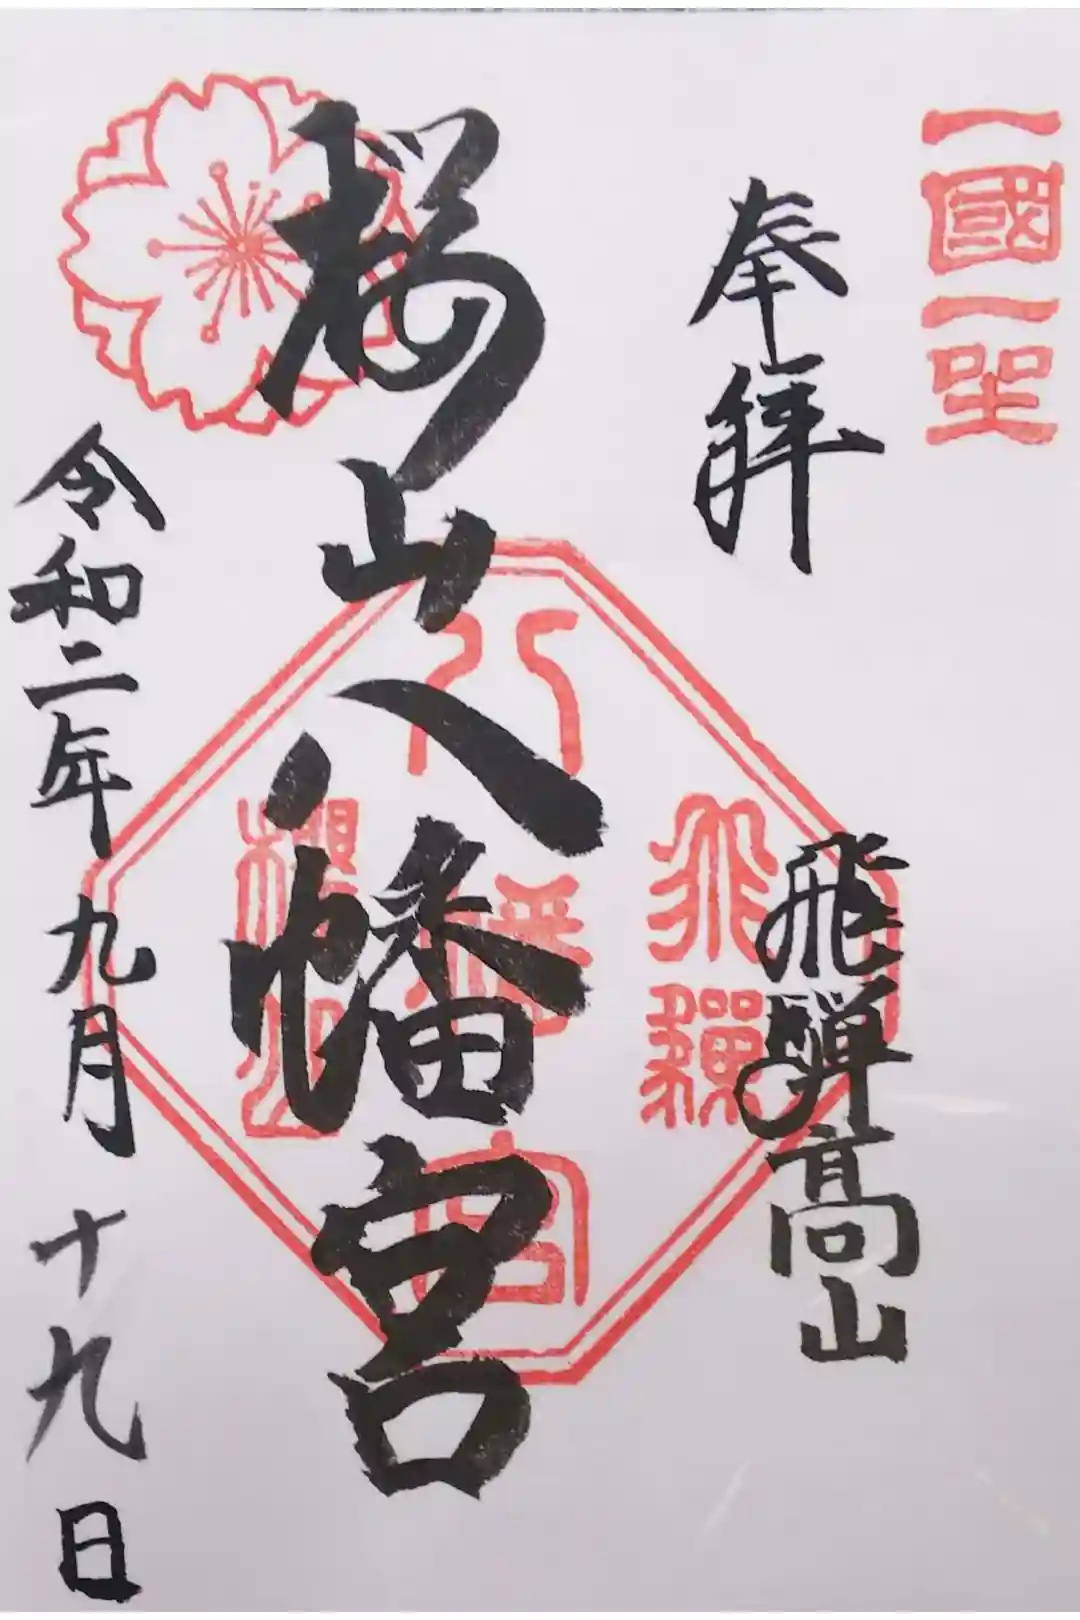 一國一宮
奉拝
飛騨高山
桜山八幡宮
令和二年九月十九日
飛騨
八幡宮
櫻山